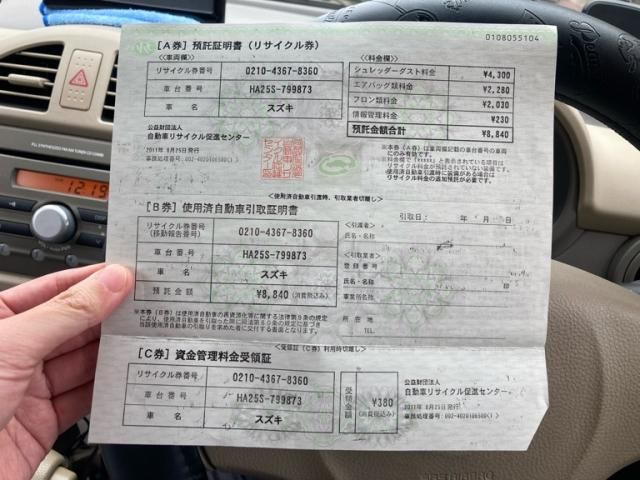 0108055104
[A券] 預託証明書 (リサイクル券)
<車両欄>
リサイクル券番号 0210-4367-8360
車台番号 HA25S-799873
車名 スズキ
<料金欄>
シュレッダーダスト料金 ¥4,300
エアバッグ類料金 ¥2,280
フロン類料金 ¥2,030
情報管理料金 ¥230
預託金額合計 ¥8,840
公益財団法人
自動車リサイクル促進センター
2011年 8月25日発行
※本券(A券)は車両欄記載の車台番号の車両
にのみ有効です。
<使用済自動車引渡時、引取業者切離し>
[B券] 使用済自動車引取証明書
引取日: 年 月 日
リサイクル券番号
(移動報告番号) 0210-4367-8360
車台番号 HA25S-799873
車名 スズキ
預託金額 ¥8,840 (消費税込み)
<引渡者>
氏名・名称
<引取業者>
登録番号
氏名・名称 印
事業所名
所在地
TEL.
※本券(B券)は使用済自動車の再資源化等に関する法律第9条の規定
により、使用済自動車を引取った際に同法第80条の規定に基づき
当該使用済自動車の引取りを求めた者に交付する書面となります。
<受領証(C券)利用時切離し>
[C券] 資金管理料金受領証
リサイクル券番号 0210-4367-8360
車台番号 HA25S-799873
車名 スズキ
受領金額 ¥380
(消費税込み)
公益財団法人
自動車リサイクル促進センター
2011年 8月25日発行
12:19